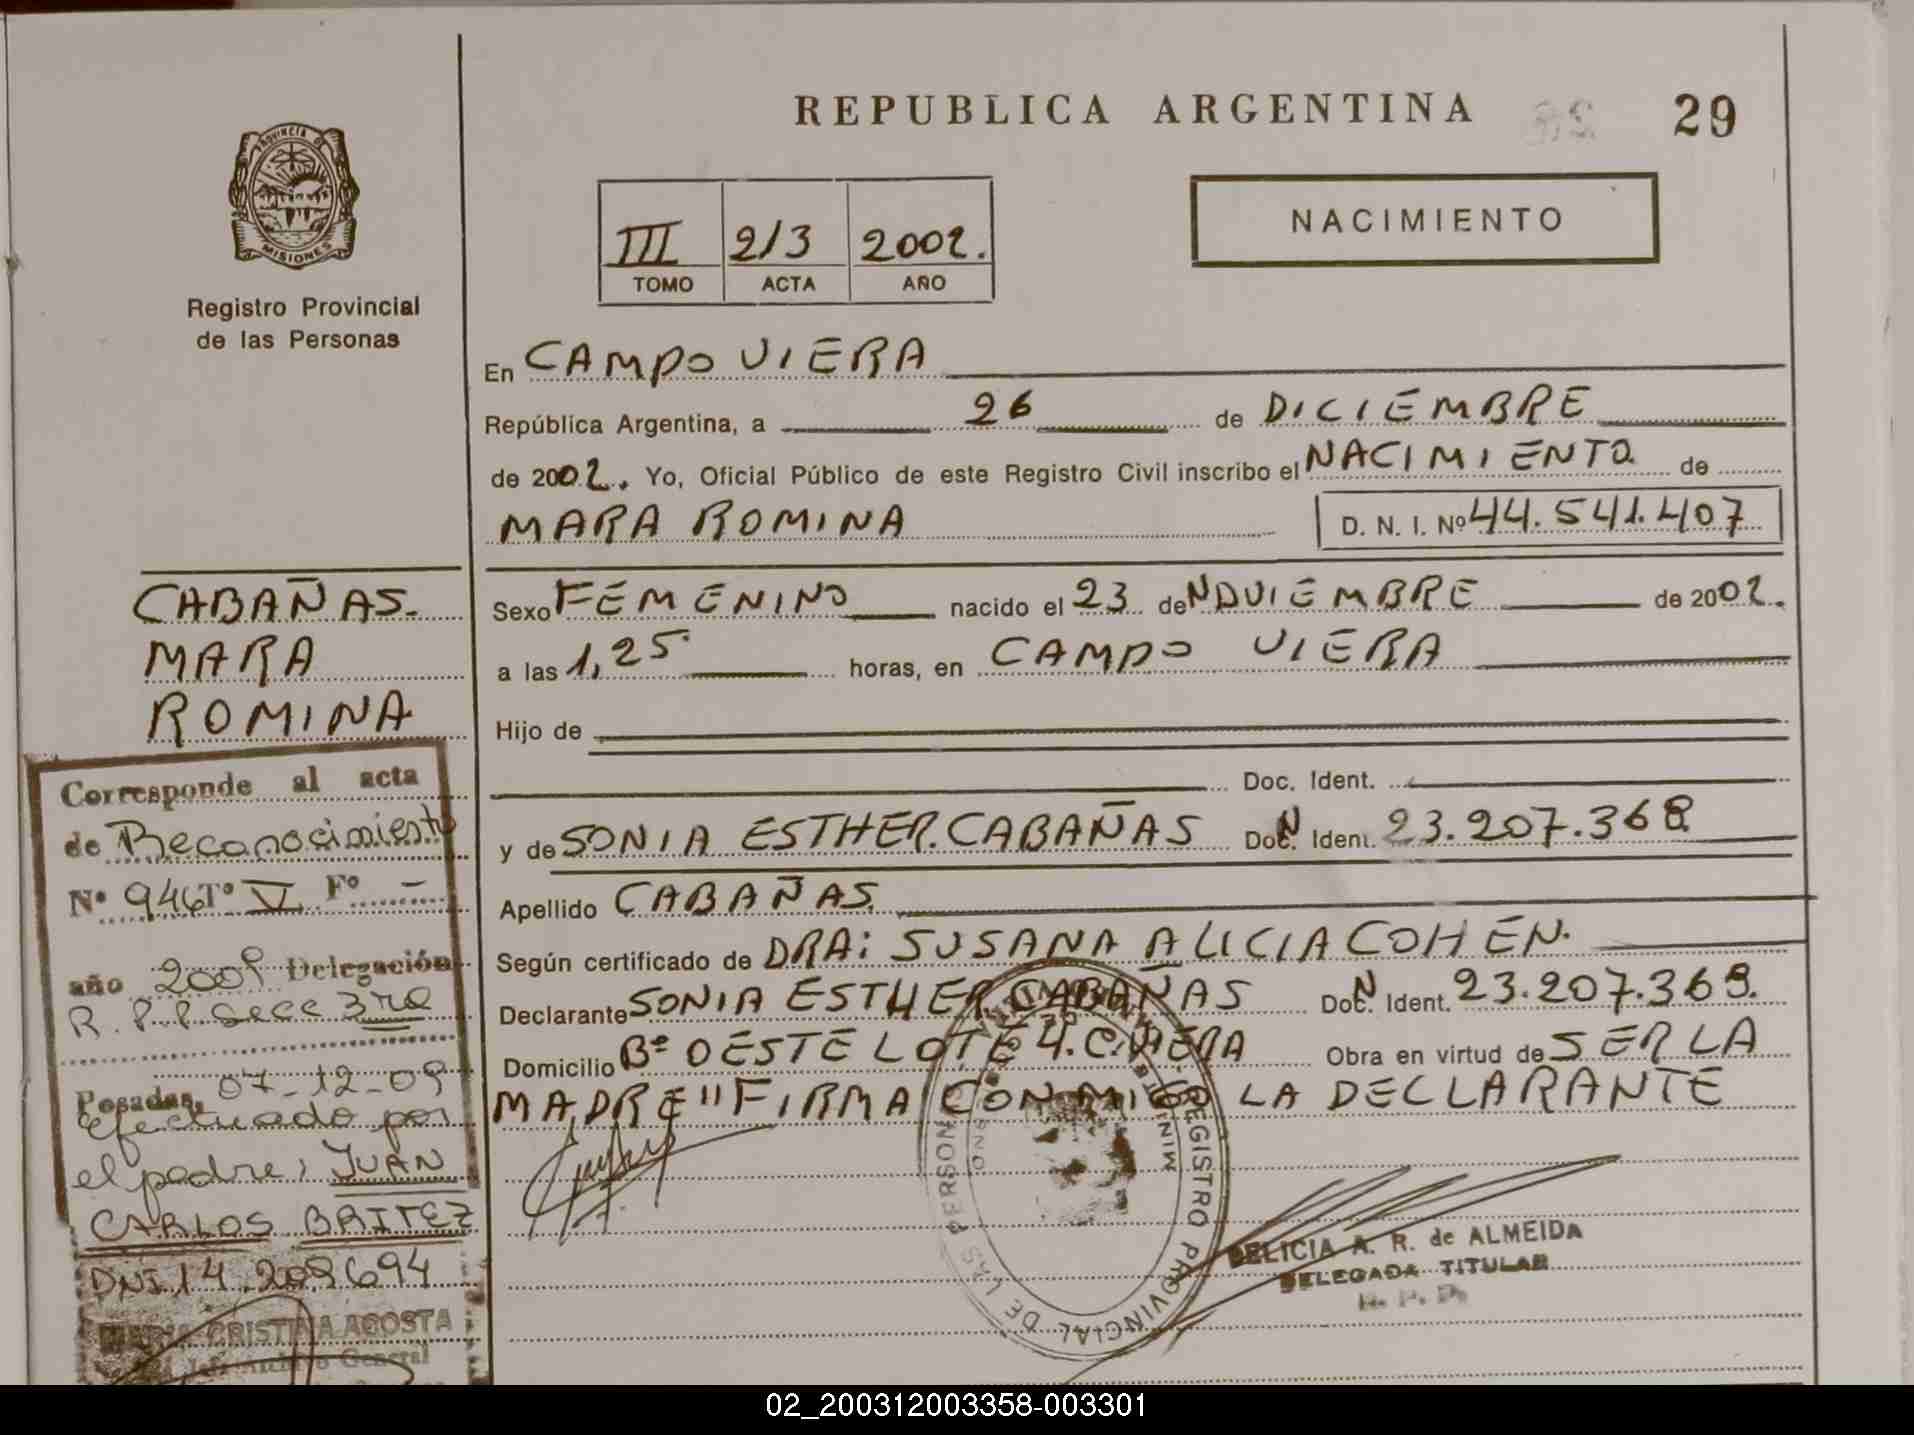 REPUBLICA ARGENTINA
29
PROVINCIA D
MISIONES
Registro Provincial
de las Personas
III 213 2002.
TOMO ACTA AÑO
NACIMIENTO
En CAMPO VIERA
República Argentina, a 26 de DICIEMBRE
de 2002. Yo, Oficial Público de este Registro Civil inscribo el NACIMIENTO de
MARA ROMINA D. N. I. Nº 44.541.407
CABAÑAS.
MARA
ROMINA
Sexo FEMENINO nacido el 23 de NOVIEMBRE de 2002.
a las 1,25 horas, en CAMPO VIERA
Hijo de
Doc. Ident.
y de SONIA ESTHER CABAÑAS Doc. Ident. 23.207.368
Apellido CABAÑAS.
Según certificado de DRA: SUSANA ALICIA COHEN.
Declarante SONIA ESTHER CABAÑAS Doc. Ident. 23.207.368.
Domicilio Bº OESTE LOTE 4. C. VIERA Obra en virtud de SER LA
MADRE" FIRMA CONMIGO LA DECLARANTE
Corresponde al acta
de Reconocimiento
Nº 946 Tº V Fº -
año 2009 Delegación
R. P. P. Secc 3ra
Posadas, 07-12-09
Efectuado por
el padre, JUAN
CARLOS BRITEZ
DNI 14.209.694
MARIA CRISTINA ACOSTA
Archivo General
REGISTRO PROVINCIAL DE LAS PERSON
DELICIA A. R. de ALMEIDA
DELEGADA TITULAR
R. P. P.
02_200312003358-003301